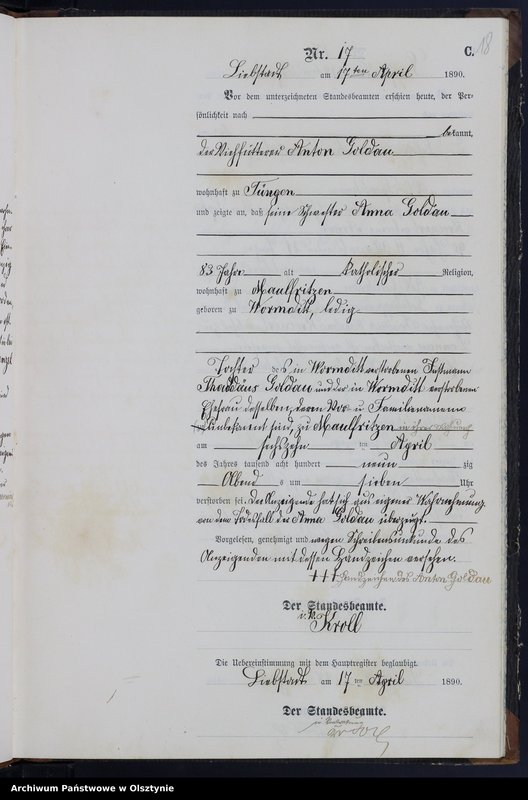 18
Nr. 17 C.
Liebstadt am 17ten April 1890.
Vor dem unterzeichneten Standesbeamten erschien heute, der Per-
sönlichkeit nach
bekannt,
der Viehfütterer Anton Goldau
wohnhaft zu Tüngen
und zeigte an, daß seine Schwester Anna Goldau
83 Jahre alt katholischer Religion,
wohnhaft zu Maulfritzen
geboren zu Wormditt, ledig
Tochter des in Wormditt verstorbenen Instmann
Thaddäus Goldau und der in Wormditt verstorbenen
Ehefrau desselben, deren Vor- u Familiennamen
unbekannt sind, zu Maulfritzen in ihrer Wohnung
am sechszehnten April
des Jahres tausend acht hundert neunzig
Abends um sieben Uhr
verstorben sei. Der Anzeigende hat sich aus eigener Wahrnehmung
von dem Todesfall der Anna Goldau überzeugt.
Vorgelesen, genehmigt und wegen Schreibensunkunde des
Anzeigenden mit dessen Handzeichen versehen.
+++ Handzeichen des Anton Goldau
Der Standesbeamte.
i. V.
Kroll
Die Uebereinstimmung mit dem Hauptregister beglaubigt.
Liebstadt am 17ten April 1890.
Der Standesbeamte.
in Vertretung
Archiwum Państwowe w Olsztynie